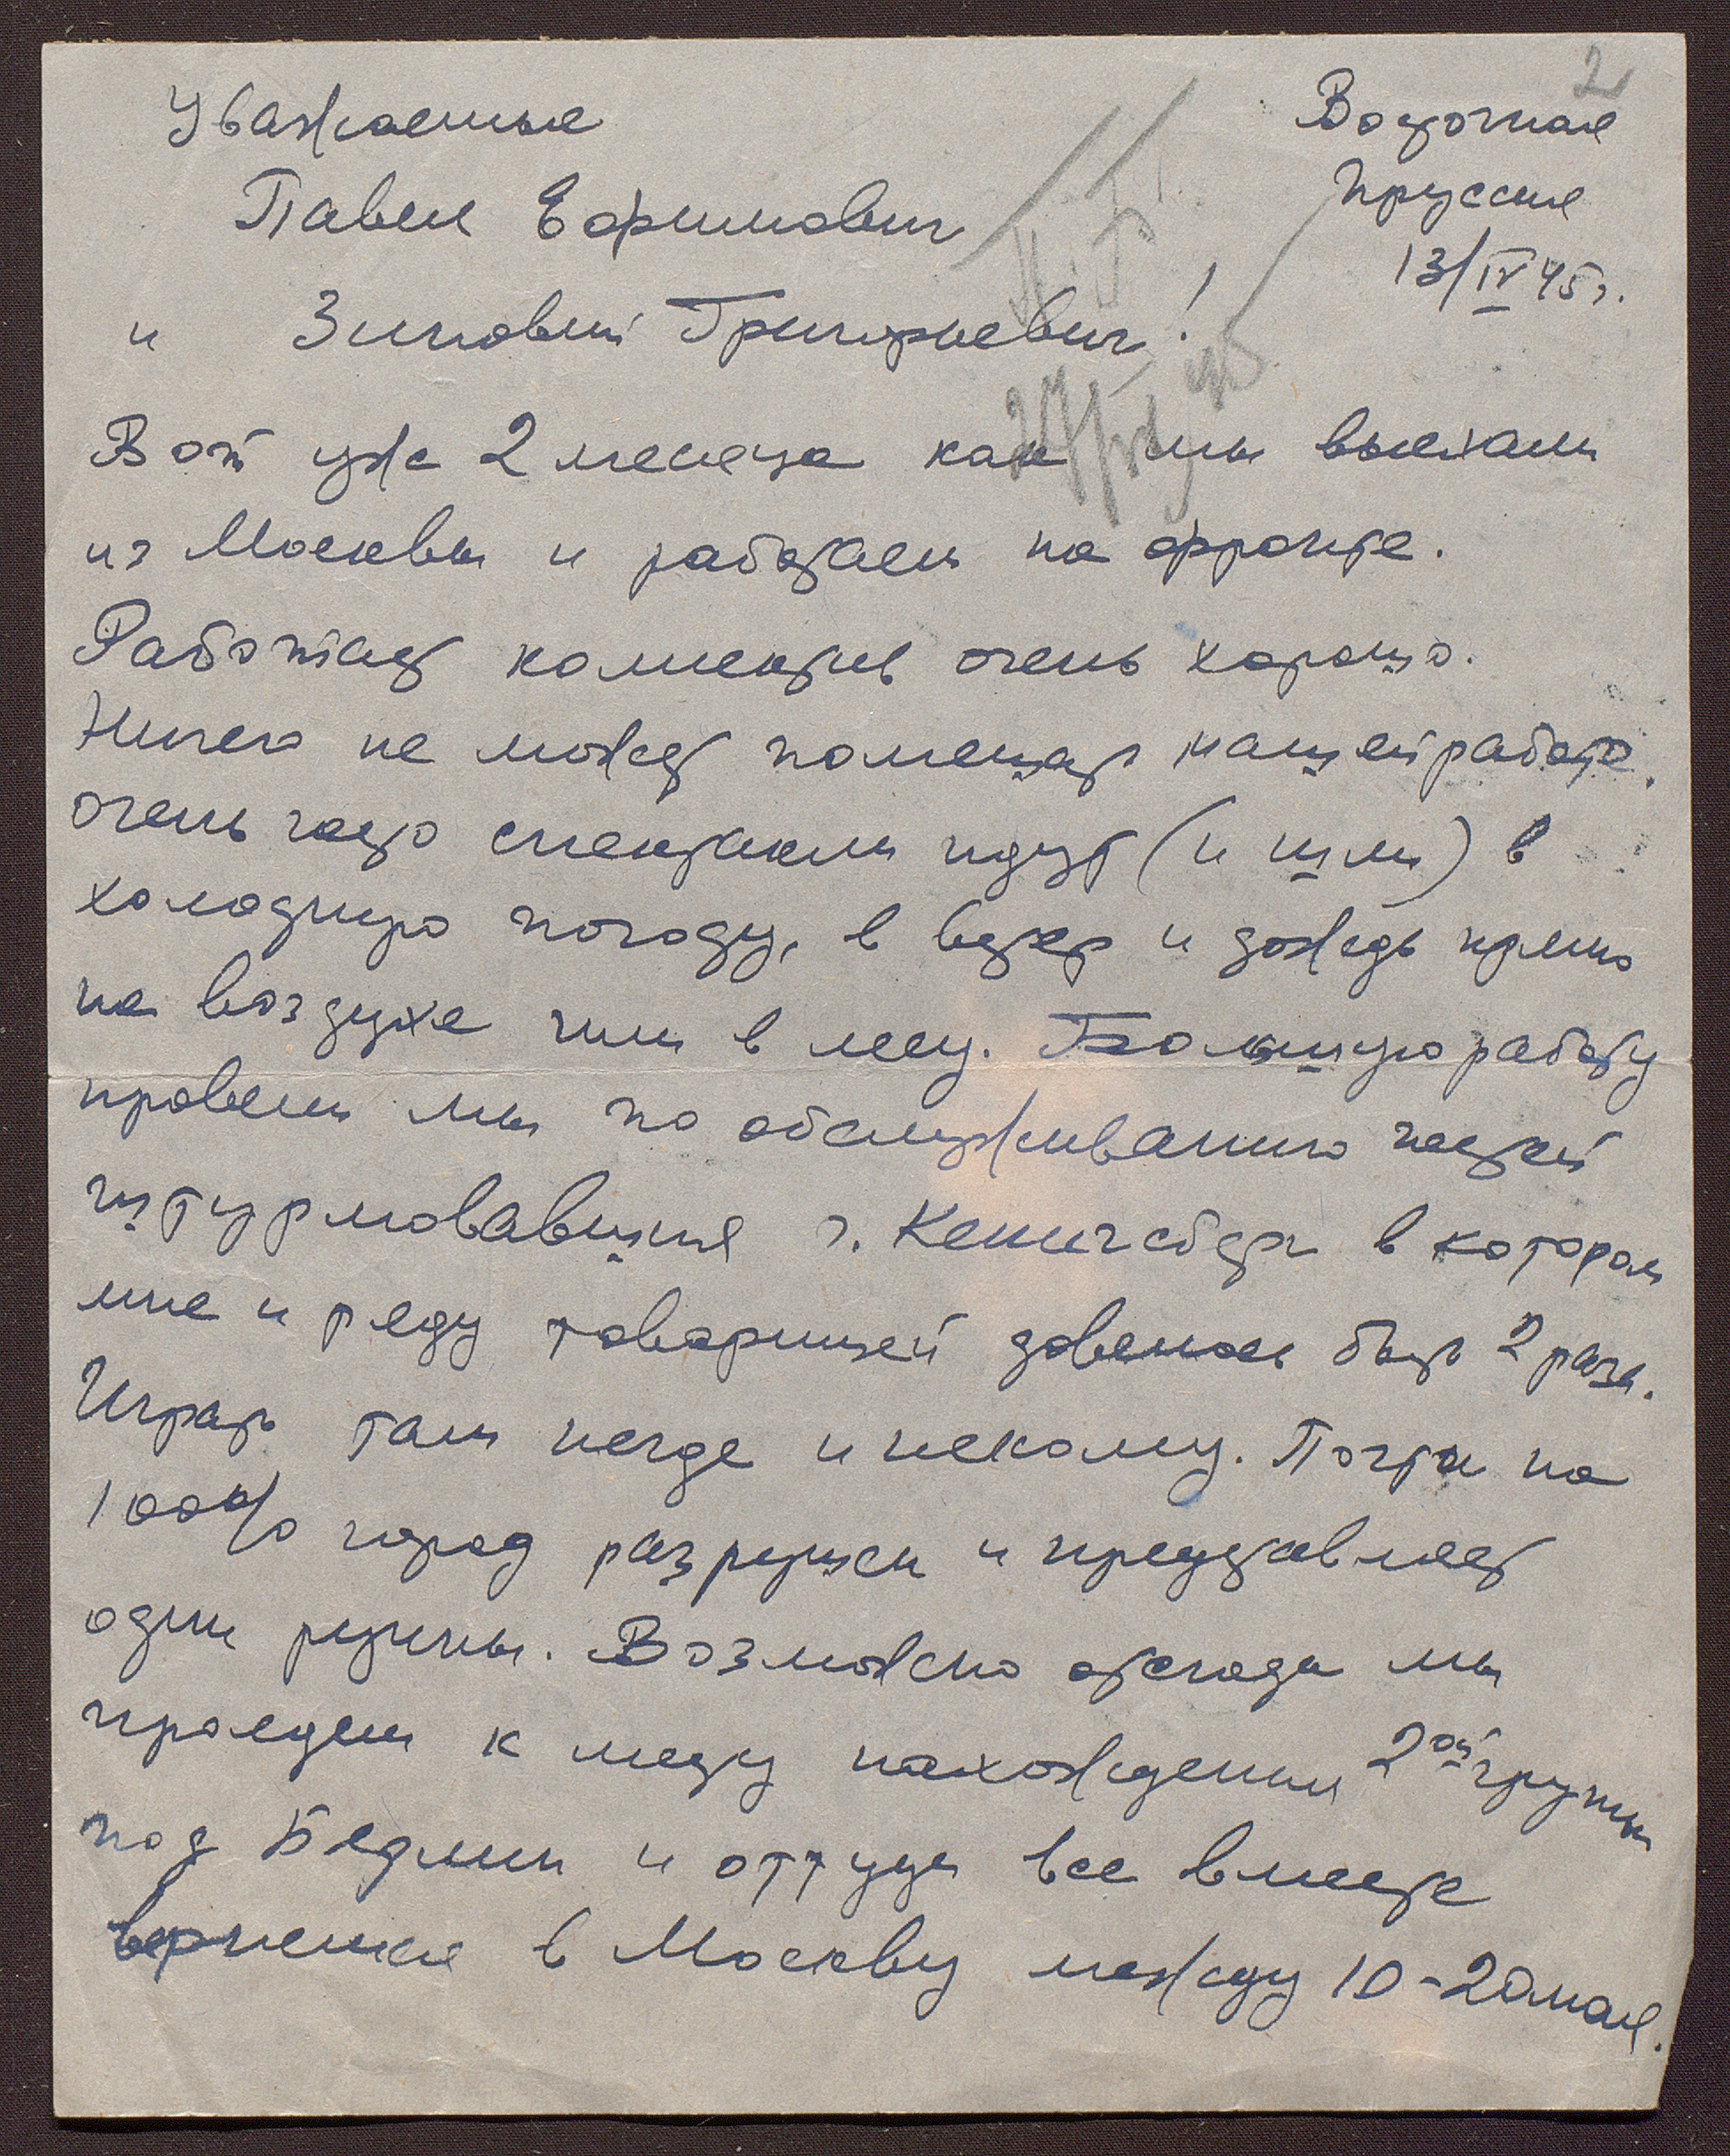 2
Восточная
Пруссия
13/IV 45 г.
Уважаемые
Павел Ефимович
и Зиновий Григорьевич!
Вот уже 2 месяца как мы выехали
из Москвы и работаем на фронте.
Работает коллектив очень хорошо.
Ничего не может помешать нашей работе.
Очень часто спектакли идут (и шли) в
холодную погоду, в ветер и дождь прямо
на воздухе или в лесу. Большую работу
провели мы по обслуживанию частей
штурмовавших г. Кенигсберг в котором
мне и ряду товарищей довелось быть 2 раза.
Играть там негде и некому. Почти на
100% город разрушен и представляет
одни руины. Возможно отсюда мы
проедем к месту нахождения 2ой группы
под Берлин и оттуда все вместе
вернемся в Москву между 10-20 мая.